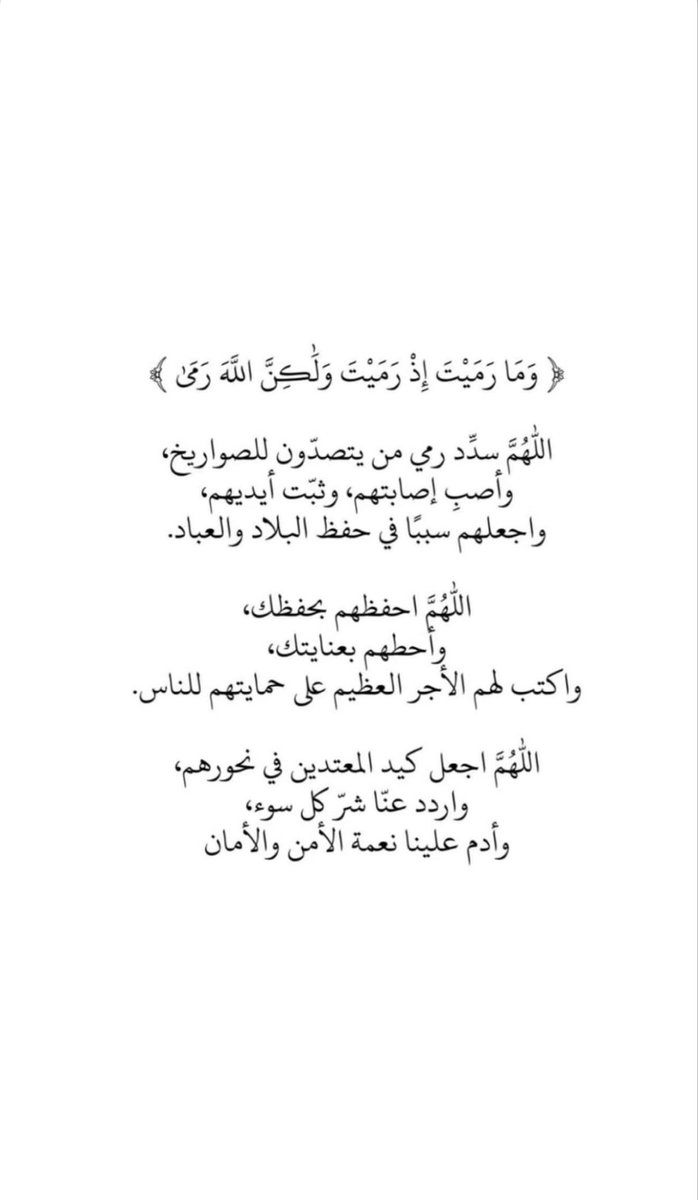 ﴿ وَمَا رَمَيْتَ إِذْ رَمَيْتَ وَلَٰكِنَّ اللَّهَ رَمَىٰ ﴾
اللَّهُمَّ سدِّد رمي من يتصدّون للصواريخ،
وأصبِ إصابتهم، وثبّت أيديهم،
واجعلهم سببًا في حفظ البلاد والعباد.
اللَّهُمَّ احفظهم بحفظك،
وأحطهم بعنايتك،
واكتب لهم الأجر العظيم على حمايتهم للناس.
اللَّهُمَّ اجعل كيد المعتدين في نحورهم،
واردد عنّا شرّ كل سوء،
وأدم علينا نعمة الأمن والأمان